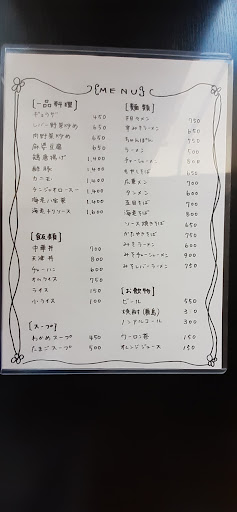 MENU
[一品料理]
ギョウザ 450
レバー野菜炒め 650
肉野菜炒め 650
麻婆豆腐 650
鶏唐揚げ 1,400
酢豚 1,400
カニ玉 1,400
チンジャオロースー 1,400
海老 1,400
海老チリソース 1,400
[飯類]
中華丼 700
天津丼 800
チャーハン 600
オムライス 750
ライス 150
小ライス 100
[スープ]
わかめスープ 450
たまごスープ 500
[麺類]
750
650
ちゃんぽん 750
ラーメン 500
チャーシューメン 800
もやしそば 650
広東メン 700
タンメン 600
五目そば 700
海老そば 800
ソース焼きそば 650
かたやきそば 750
みそラーメン 600
みそチャーシューメン 900
みそ 750
[お飲物]
ビール 550
焼酎 300
ノンアルコール 300
ウーロン茶 150
オレンジジュース 150